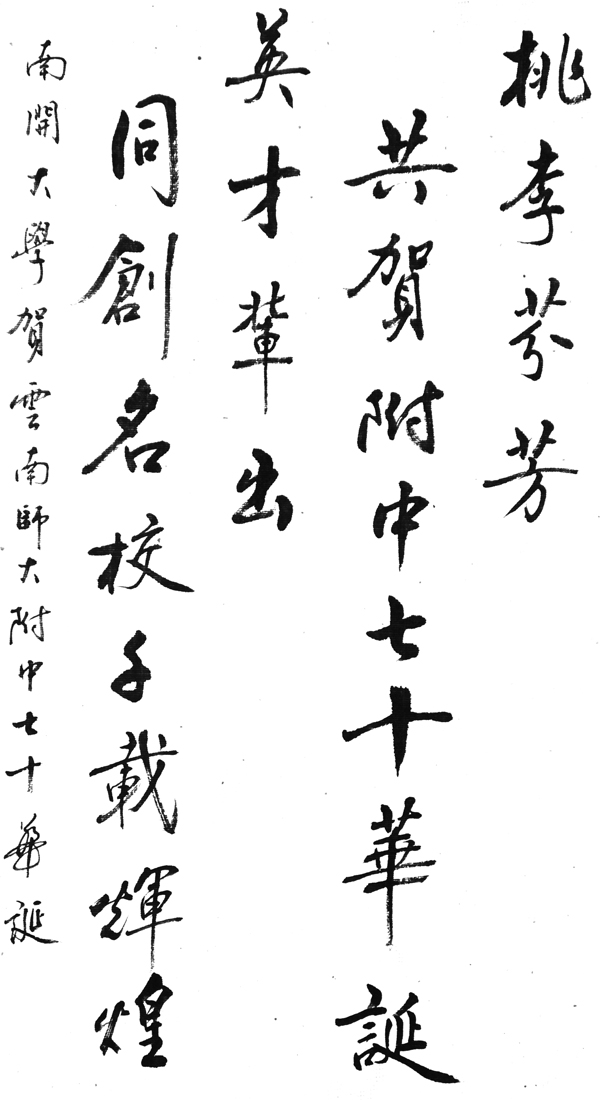 桃李芬芳
共賀附中七十華誕
英才輩出
同創名校千載輝煌
南開大學賀雲南師大附中七十華誕